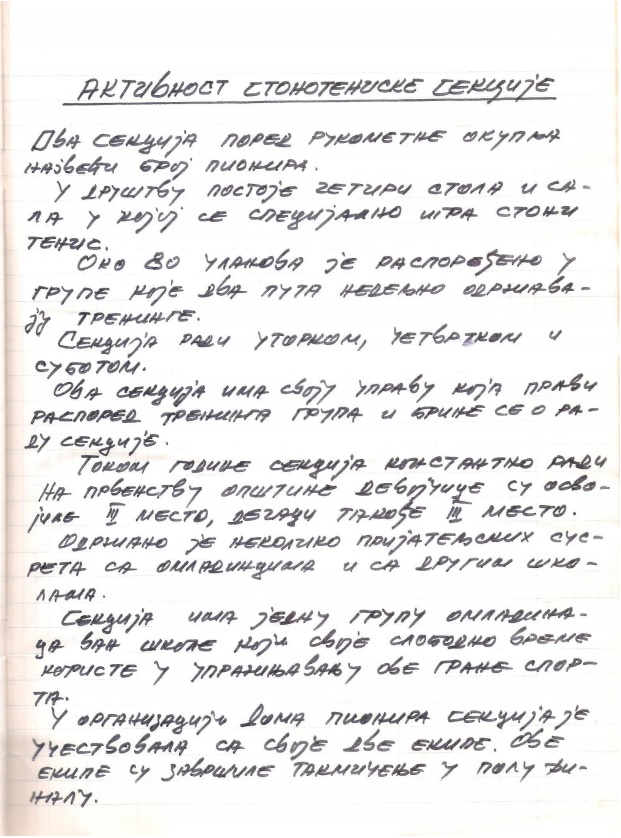 АКТИВНОСТ СТОНОТЕНИСКЕ СЕКЦИЈЕ
ОВА СЕКЦИЈА ПОРЕД РУКОМЕТНЕ ОКУПЉА
НАЈВЕЋИ БРОЈ ПИОНИРА.
У ДРУШТВУ ПОСТОЈЕ ЧЕТИРИ СТОЛА И СА-
ЛА У КОЈОЈ СЕ СПЕЦИЈАЛНО ИГРА СТОНИ
ТЕНИС.
ОКО 80 ЧЛАНОВА ЈЕ РАСПОРЕЂЕНО У
ГРУПЕ КОЈЕ ДВА ПУТА НЕДЕЉНО ОДРЖАВА-
ЈУ ТРЕНИНГЕ.
СЕКЦИЈА РАДИ УТОРКОМ, ЧЕТВРТКОМ И
СУБОТОМ.
ОВА СЕКЦИЈА ИМА СВОЈУ УПРАВУ КОЈА ПРАВИ
РАСПОРЕД ТРЕНИНГА ГРУПА И БРИНЕ СЕ О РА-
ДУ СЕКЦИЈЕ.
ТОКОМ ГОДИНЕ СЕКЦИЈА КОНСТАНТНО РАДИ
НА ПРВЕНСТВУ ОПШТИНЕ ДЕВОЈЧИЦЕ СУ ОСВО-
ЈИЛЕ III МЕСТО, ДЕЧАЦИ ТАКОЂЕ III МЕСТО.
ОДРЖАНО ЈЕ НЕКОЛИКО ПРИЈАТЕЉСКИХ СУС-
РЕТА СА ОМЛАДИНЦИМА И СА ДРУГИМ ШКО-
ЛАМА.
СЕКЦИЈА ИМА ЈЕДНУ ГРУПУ ОМЛАДИНА-
ЦА ВАН ШКОЛЕ КОЈИ СВОЈЕ СЛОБОДНО ВРЕМЕ
КОРИСТЕ У УПРАЖЊАВАЊУ ОВЕ ГРАНЕ СПОР-
ТА.
У ОРГАНИЗАЦИЈИ ДОМА ПИОНИРА СЕКЦИЈА ЈЕ
УЧЕСТВОВАЛА СА СВОЈЕ ДВЕ ЕКИПЕ. ОВЕ
ЕКИПЕ СУ ЗАВРШИЛЕ ТАКМИЧЕЊЕ У ПОЛУ ФИ-
НАЛУ.